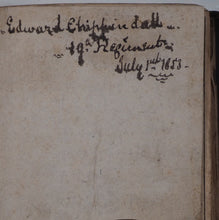 Edward Chippindall
19th Regiment
July 1st 1853